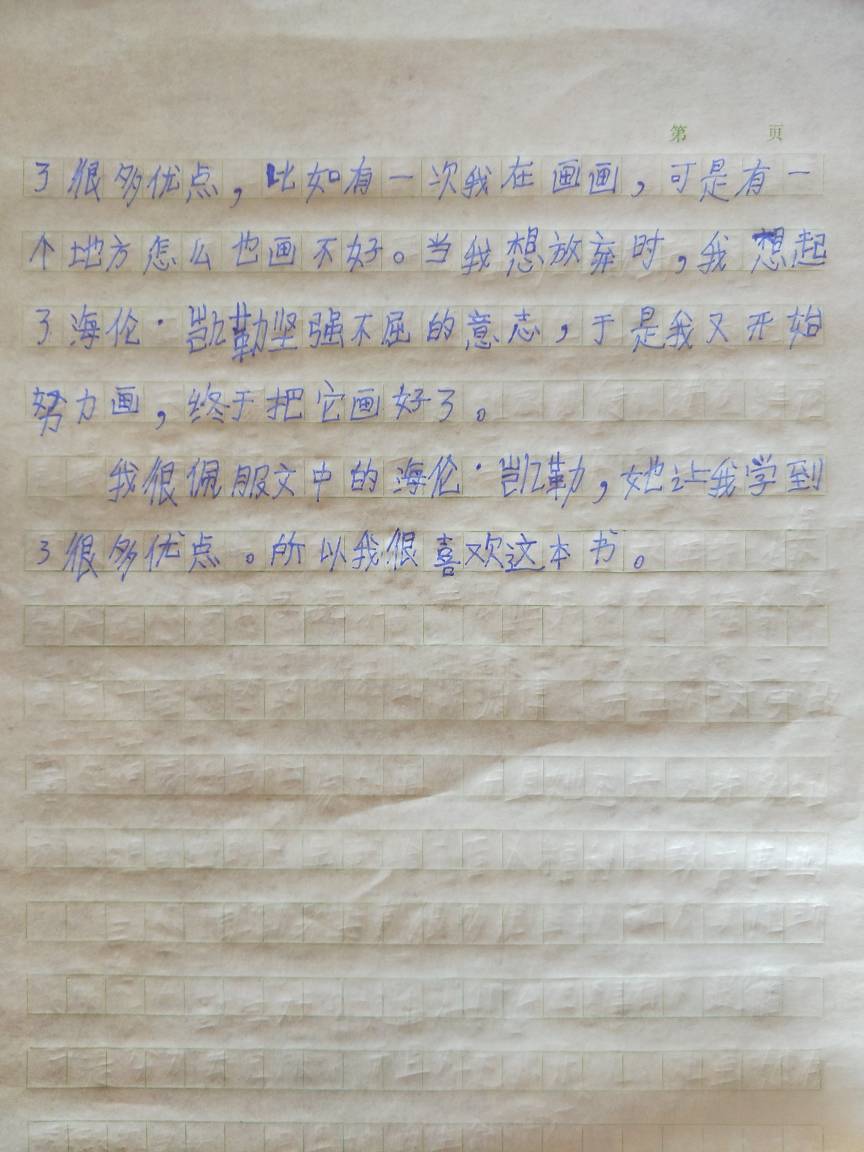 第 页
了很多优点，比如有一次我在画画，可是有一
个地方怎么也画不好。当我想放弃时，我想起
了海伦·凯勒坚强不屈的意志，于是我又开始
努力画，终于把它画好了。
我很佩服文中的海伦·凯勒，她让我学到
了很多优点。所以我很喜欢这本书。